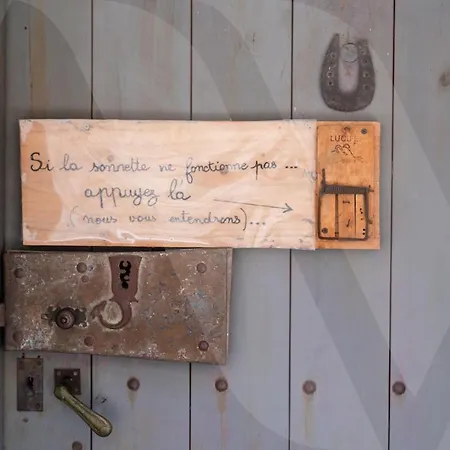 Si la sonnette ne fonctionne pas ...
appuyez là
(nous vous entendrons) ...
LUCU